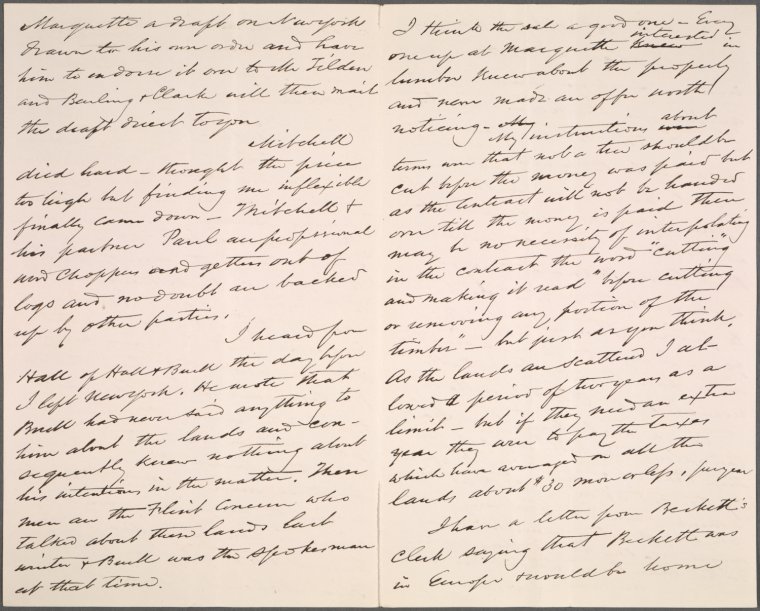 Marquette a draft on New york
drawn to his own order and have
him to endorse it over to Mr Tilden
and Beuling & Clark will then mail
the draft direct to you
Mitchell
died hard – thought the price
too high but finding me inflexible
finally came down – Mitchell &
his partner Paul are professional
wood choppers and getters out of
logs and no doubt are backed
up by other parties.
I heard from
Hall of Hall & Buell the day before
I left New york. He wrote that
Buell had never said anything to
him about the lands and con-
sequently knew nothing about
his intentions in the matter. These
men are the Flint Concern who
talked about these lands last
winter & Buell was the spokesman
at that time.
I think the sale a good one – Every
one up at Marquette knew interested in
lumber knew about the property
and never made an offer worth
noticing – My
My instructions were about
terms were that not a tree should be
cut before the money was paid but
as the contract will not be handed
over till the money is paid there
may be no necessity of interpolating
in the contract the word "cutting"
and making it read "before cutting
or removing any portion of the
timber" – but just as you think.
As the lands are scattered I al-
lowed a period of two years as a
limit – but if they need an extra
year they were to pay the taxes
which have averaged on all the
lands about $30 more or less, per year
I have a letter from Beckett's
Clerk saying that Beckett was
in Europe & would be home